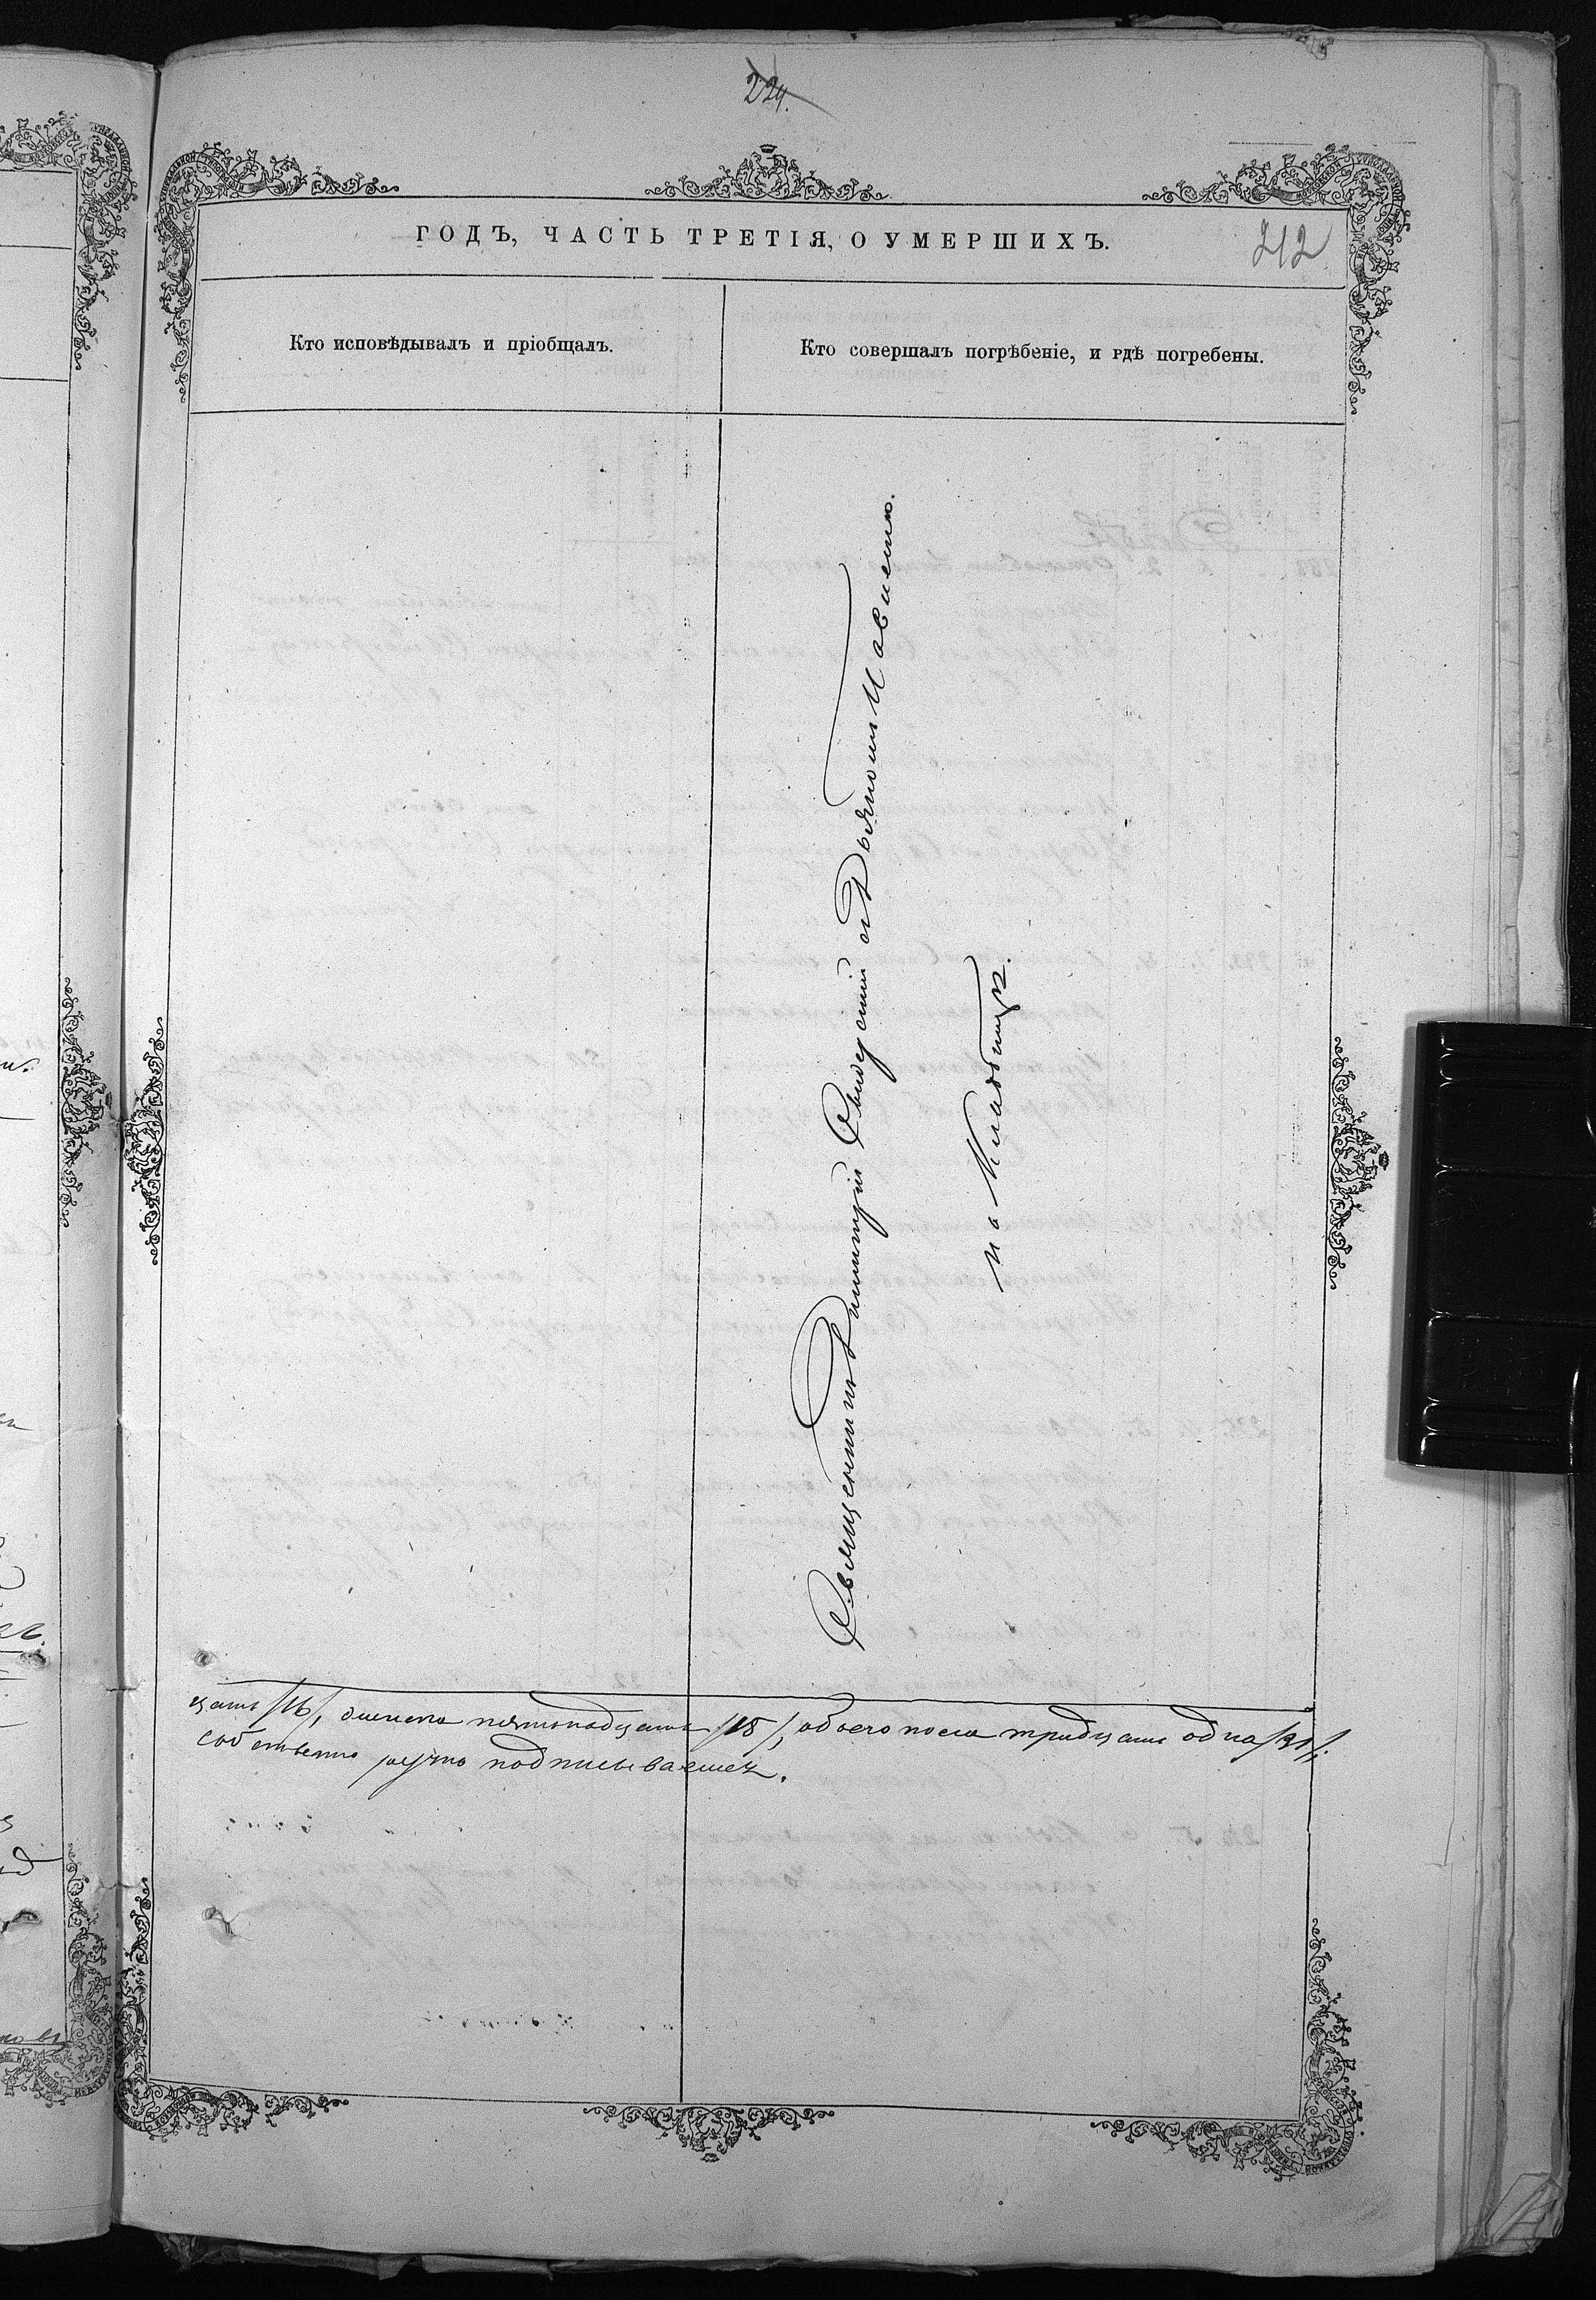 224.
ГОДЪ, ЧАСТЬ ТРЕТІЯ, О УМЕРШИХЪ.
212
Кто исповѣдывалъ и пріобщалъ.
Кто совершалъ погрѣбеніе, и гдѣ погребены.
Священникъ Димитрій с Дьякономъ
на Кладбищѣ.
цать /16/, женска пятьнадцать /15/, обоего пола тридцать одна /31/.
собственно ручно подписываемся.